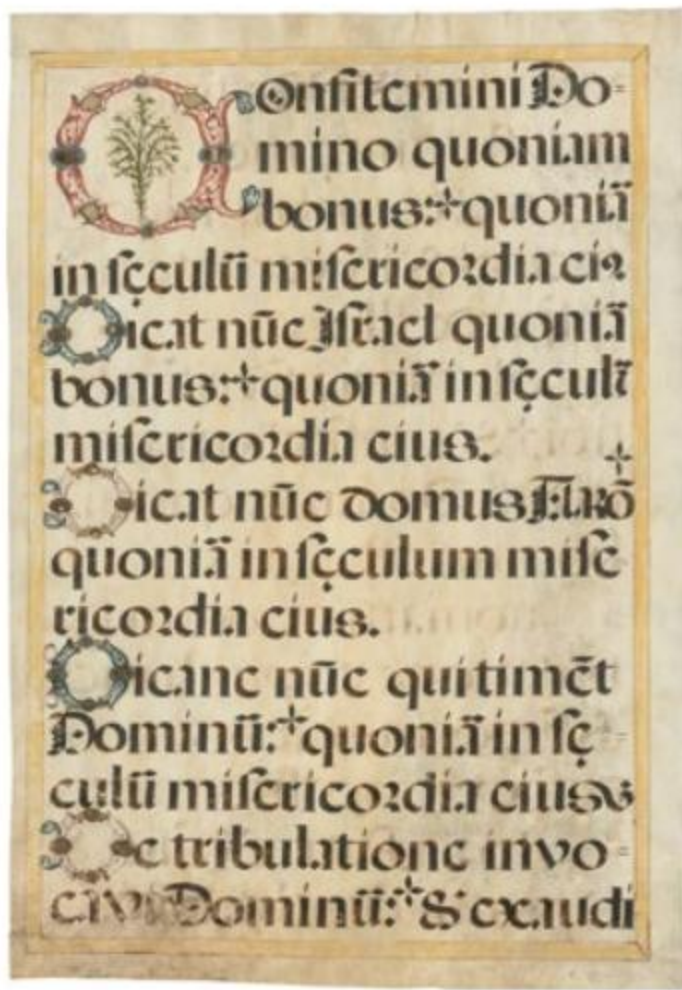 Confitemini Do=
mino quoniam
bonus:+quoniã
in sęculũ misericordia eiꝰ
Dicat nũc Israel quoniã
bonus:+quoniã in sęculũ
misericordia eius.
Dicat nũc domus Aarõ +
quoniã in sęculum mise
ricordia eius.
Dicant nũc qui timẽt
Dominũ:+quoniã in sę=
culũ misericordia eius
De tribulatione invo=
cavi Dominũ:+& exaudi